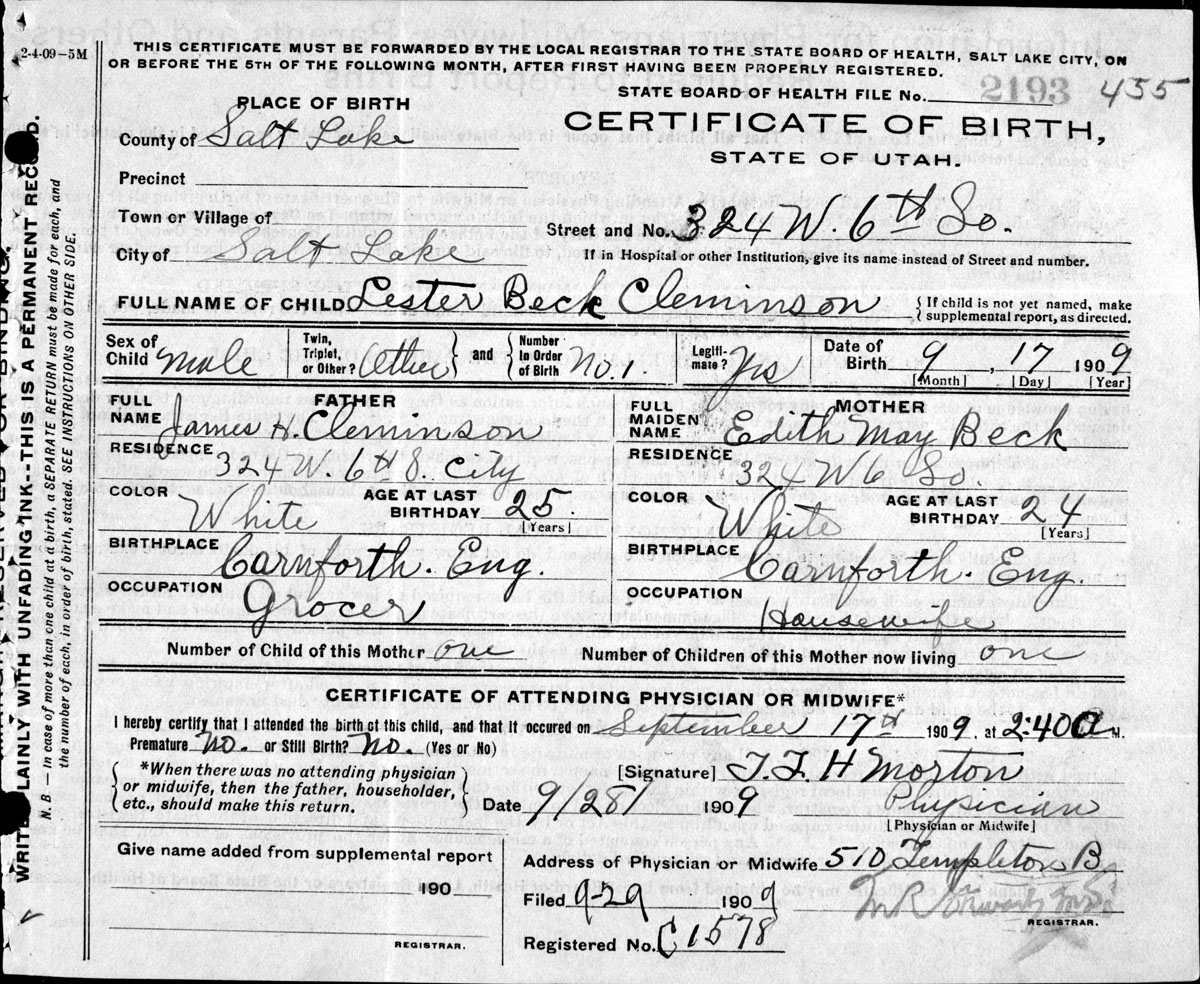 2-4-09-5M
THIS CERTIFICATE MUST BE FORWARDED BY THE LOCAL REGISTRAR TO THE STATE BOARD OF HEALTH, SALT LAKE CITY, ON
OR BEFORE THE 5TH OF THE FOLLOWING MONTH, AFTER FIRST HAVING BEEN PROPERLY REGISTERED.
STATE BOARD OF HEALTH FILE No. 2193 455
PLACE OF BIRTH
CERTIFICATE OF BIRTH,
STATE OF UTAH.
County of Salt Lake
Precinct
Town or Village of
Street and No. 324 W. 6th So.
City of Salt Lake
If in Hospital or other Institution, give its name instead of Street and number.
FULL NAME OF CHILD Lester Beck Cleminson { If child is not yet named, make
supplemental report, as directed.
Sex of Child male Twin, Triplet, or Other? Other and Number In Order of Birth No. 1. Legiti-mate? Yes Date of Birth 9, 17 1909
[Month] [Day] [Year]
FATHER
FULL NAME James H. Cleminson
RESIDENCE 324 W. 6th S. City
COLOR White AGE AT LAST BIRTHDAY 25
[Years]
BIRTHPLACE Carnforth. Eng.
OCCUPATION Grocer
MOTHER
FULL MAIDEN NAME Edith May Beck
RESIDENCE 324 W 6 So.
COLOR White AGE AT LAST BIRTHDAY 24
[Years]
BIRTHPLACE Carnforth. Eng.
OCCUPATION Housewife
Number of Child of this Mother one Number of Children of this Mother now living one
CERTIFICATE OF ATTENDING PHYSICIAN OR MIDWIFE*
I hereby certify that I attended the birth of this child, and that it occured on September 17th 1909. at 2:40 A M.
Premature No. or Still Birth? No. (Yes or No)
{ *When there was no attending physician
or midwife, then the father, householder,
etc., should make this return. }
[Signature] T. F. H Morton
Date 9/28/ 1909 Physician
[Physician or Midwife]
Give name added from supplemental report
190
REGISTRAR.
Address of Physician or Midwife 510 Templeton B.
Filed 9-29 1909
REGISTRAR.
Registered No. C1578
N. B. — In case of more than one child at a birth, a SEPARATE RETURN must be made for each, and
the number of each, in order of birth, stated. SEE INSTRUCTIONS ON OTHER SIDE.
LAINLY WITH UNFADING INK--THIS IS A PERMANENT RECORD.